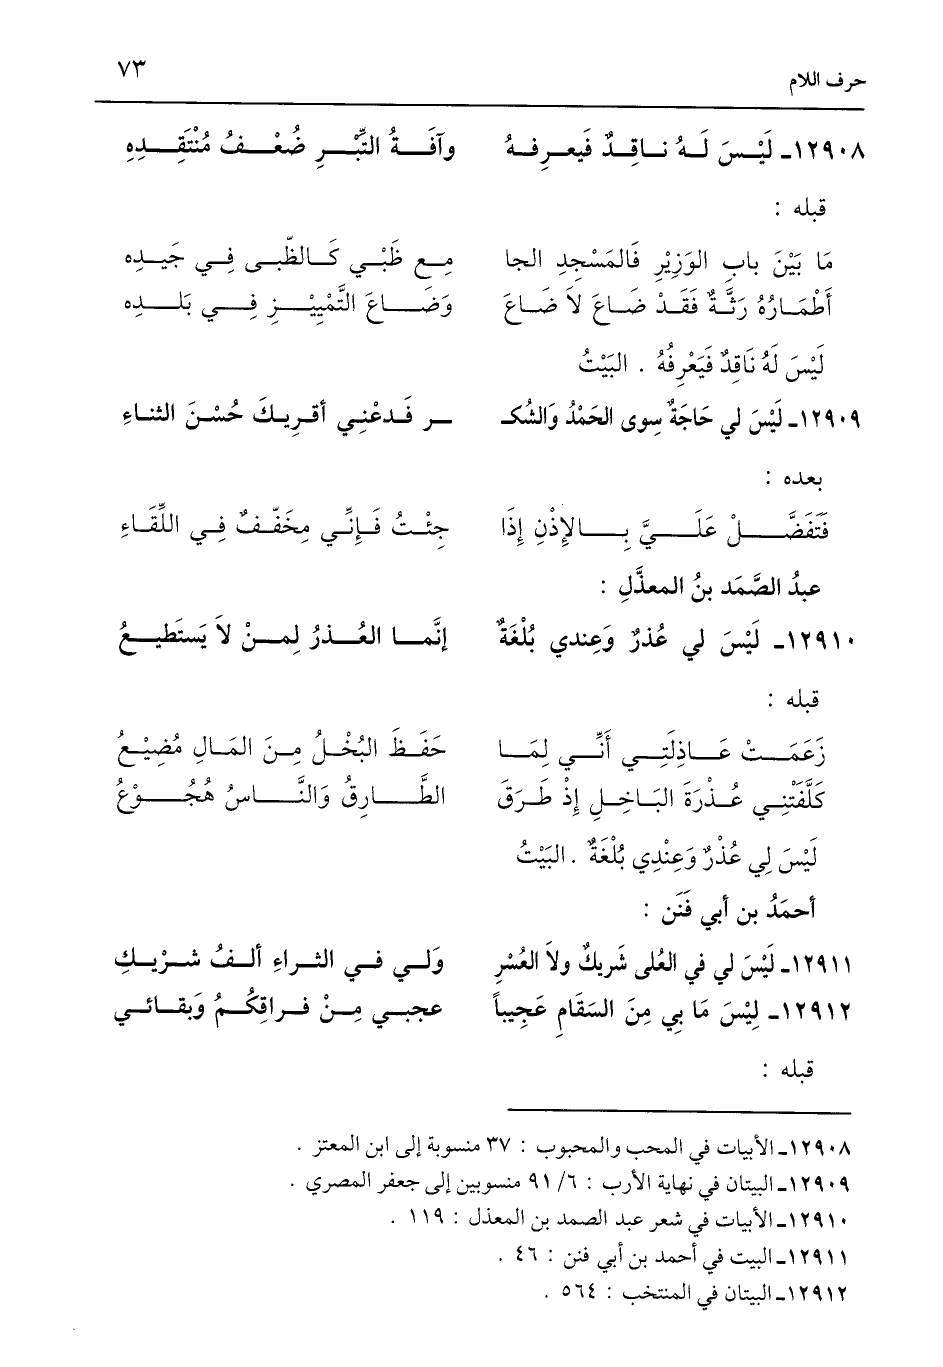 حرف اللام ٧٣
١٢٩٠٨ـ لَيْسَ لَهُ ناقِدٌ فَيعرِفهُ وآفَةُ التِّبْرِ ضُعْفُ مُنْتَقِدِهِ
قبله :
مَا بَيْنَ بابِ الوَزِيْرِ فَالمَسْجِدِ الجا مِعِ ظَبْي كَالظَّبى فِي جَيَدِه
أَطْمَارُهُ رَثَّةٌ فَقَدْ ضَاعَ لاَ ضَاعَ وَضَاعَ التَّمْيِيْزِ فِي بَلَدِه
لَيْسَ لَهُ نَاقِدٌ فَيَعْرِفُهُ . البَيْتُ
١٢٩٠٩ـ لَيْسَ لي حَاجَةٌ سِوى الحَمْدُ وَالشكـ ـر فَدعْنِي أقرِيكَ حُسْنَ الثناءِ
بعده :
فَتَفَضَّلْ عَلَيَّ بِالإِذْنِ إِذَا جِئْتُ فَإِنِّي مِخَفّفٌ فِي اللِّقَاءِ
عبدُ الصَّمَد بنُ المعذَّلِ :
١٢٩١٠ـ لَيْسَ لي عُذرٌ وَعِندي بُلْغَةٌ إنَّما العُذرُ لِمنْ لاَ يَستَطِيعُ
قبله :
زَعَمَتْ عَاذِلَتِي أَنِّي لِمَا حَفَظَ البُخْلُ مِنَ المَالِ مُضِيْعُ
كَلَّفَتْنِي عُذْرَةَ البَاخِلِ إِذْ طَرَقَ الطَّارِقُ وَالنَّاسُ هُجُوْعُ
لَيْسَ لِي عُذْرٌ وَعِنْدِي بُلْغَةٌ . البَيْتُ
أحمَدُ بن أبي فَنَن :
١٢٩١١ـ لَيْسَ لي في العُلى شَرِيكٌ ولاَ العُسْرِ وَلي في الثراءِ ألفُ شَرْيكِ
١٢٩١٢ـ لِيْسَ مَا بِي مِنَ السَقَامِ عَجِيباً عجبي مِنْ فراقِكُمُ وَبقائي
قبله :
١٢٩٠٨ـ الأبيات في المحب والمحبوب : ٣٧ منسوبة إلى ابن المعتز .
١٢٩٠٩ـ البيتان في نهاية الأرب : ٦/ ٩١ منسوبين إلى جعفر المصري .
١٢٩١٠ـ الأبيات في شعر عبد الصمد بن المعذل : ١١٩ .
١٢٩١١ـ البيت في أحمد بن أبي فنن : ٤٦ .
١٢٩١٢ـ البيتان في المنتخب : ٥٦٤ .